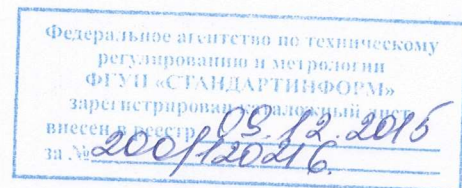 Федеральное агентство по техническому
регулированию и метрологии
ФГУП «СТАНДАРТИНФОРМ»
зарегистрирован каталожный лист
внесен в реестр 09.12.2015
за № 200/120216.